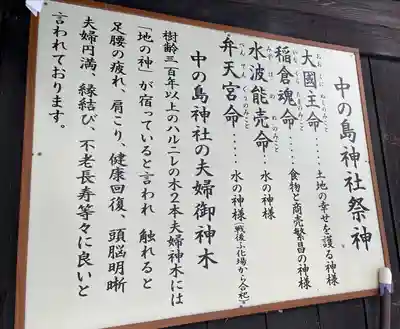 中の島神社祭神
大國主命……土地の幸せを護る神様
稲倉魂命……食物と商売繁昌の神様
水波能売命……水の神様
弁天宮命……水の神様(戦後ふ化場から合祀)
中の島神社の夫婦御神木
樹齢三百年以上のハルニレの木2本夫婦神木には
「地の神」が宿っていると言われ 触れると
足腰の疲れ、肩こり、健康回復、頭脳明晰
夫婦円満、縁結び、不老長寿等々に良いと
言われております。